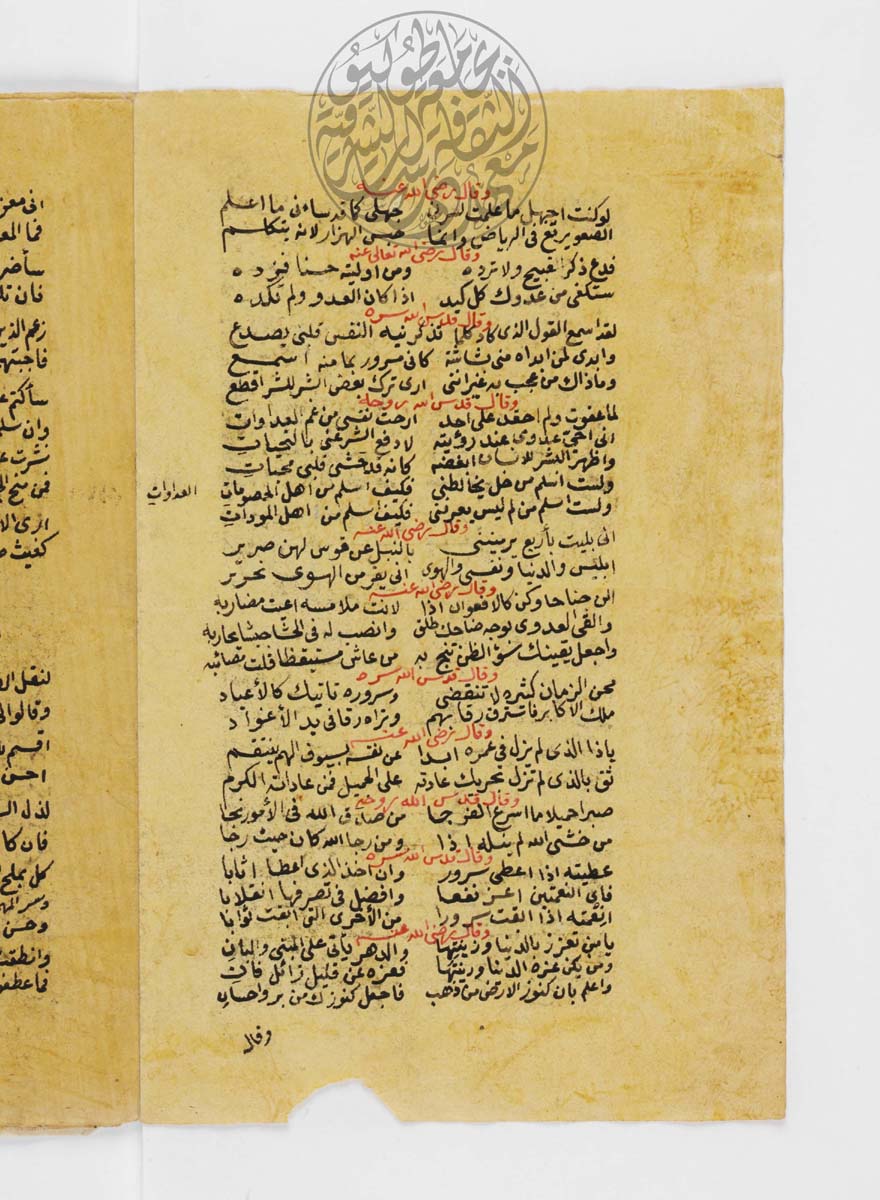 وقال رضي الله عنه
لو كنت اجهل ما علمت لسرني جهلي كما قد ساءني ما اعلم
الصعو يرتع في الرياض وانما حبس الهزار لانه يتكلم
وقال رضي الله تعالى عنه
فدع ذكر القبيح ولا ترده ومن اوليته حسنا فزده
ستكفى من عدوك كل كيد اذا كان العدو ولم تكده
وقال قدس الله سره
لقد اسمع القول الذي كاد كلما تذكرنيه النفس قلبي يصدع
وابدي لمن ابداه مني بشاشة كاني مسرور بما منه اسمع
وما ذاك من عجب به غير انني ارى ترك بعض الشر للشر اقطع
وقال قدس الله روحه
لما عفوت ولم احقد على احد ارحت نفسي من غم العداوات
اني احيي عدوي عند رؤيته لادفع الشر عني بالتحيات
واظهر البشر للانسان ابغضه كانه قد حشى قلبي محبات
ولست اسلم من خل يخالطني فكيف اسلم من اهل الخصومات
العداوات
ولست اسلم من لم ليس يعرفني فكيف اسلم من اهل المودات
وقال رضي الله عنه
اني بليت بأربع يرمينني بالنبل عن قوس لهن صرير
ابليس والدنيا ونفسي والهوى اني يفر من الهوى نحرير
وقال رضي الله عنه
الن جناحا وكن كالافعوان اذا لانت ملامسه اعيت مضاربه
والقى العدوى بوجه ضاحك طلق وانصب له في الحشا جيشا يحاربه
واجعل يقينك سؤ الظن تنج به من عاش مستيقظا قلت مصائبه
وقال قدس الله سره
محن الزمان كثيره لا تنقضي وسروره تاتيك كالأعياد
ملك الاكابر فاسترق رقابهم وتراه رقا في يد الأغواد
وقال رضي الله عنه
يا ذا الذي لم يزل في عمره ابدا عن نفسه بسيوف الهم ينتقم
ثق بالذي لم تزل تجريك عادته على الجميل فمن عاداته الكرم
وقال قدس الله روحه
صبرا جميلا ما اسرع الفرجا من صدق الله في الأمور نجا
من خشي الله لم ينله اذا ومن رجا الله كان حيث رجا
وقال قدس الله سره
عطيته اذا اعطى سرور وان اخذ الذي اعطا اثابا
فاي النعمتين اعز نفعا وافضل في تصرفها انقلابا
انعمته اذا القت سرورا من الأخرى التي ابقت ثوابا
وقال رضي الله عنه
يا من تعزز بالدنيا وزينتها والدهر يأتي على المبني والباني
ومن يكن عزه الدنيا وزينتها فعزه عن قليل زائل فاني
واعلم بان كنوز الارض من ذهب فاجعل كنوزك من بر واحسان
وقال